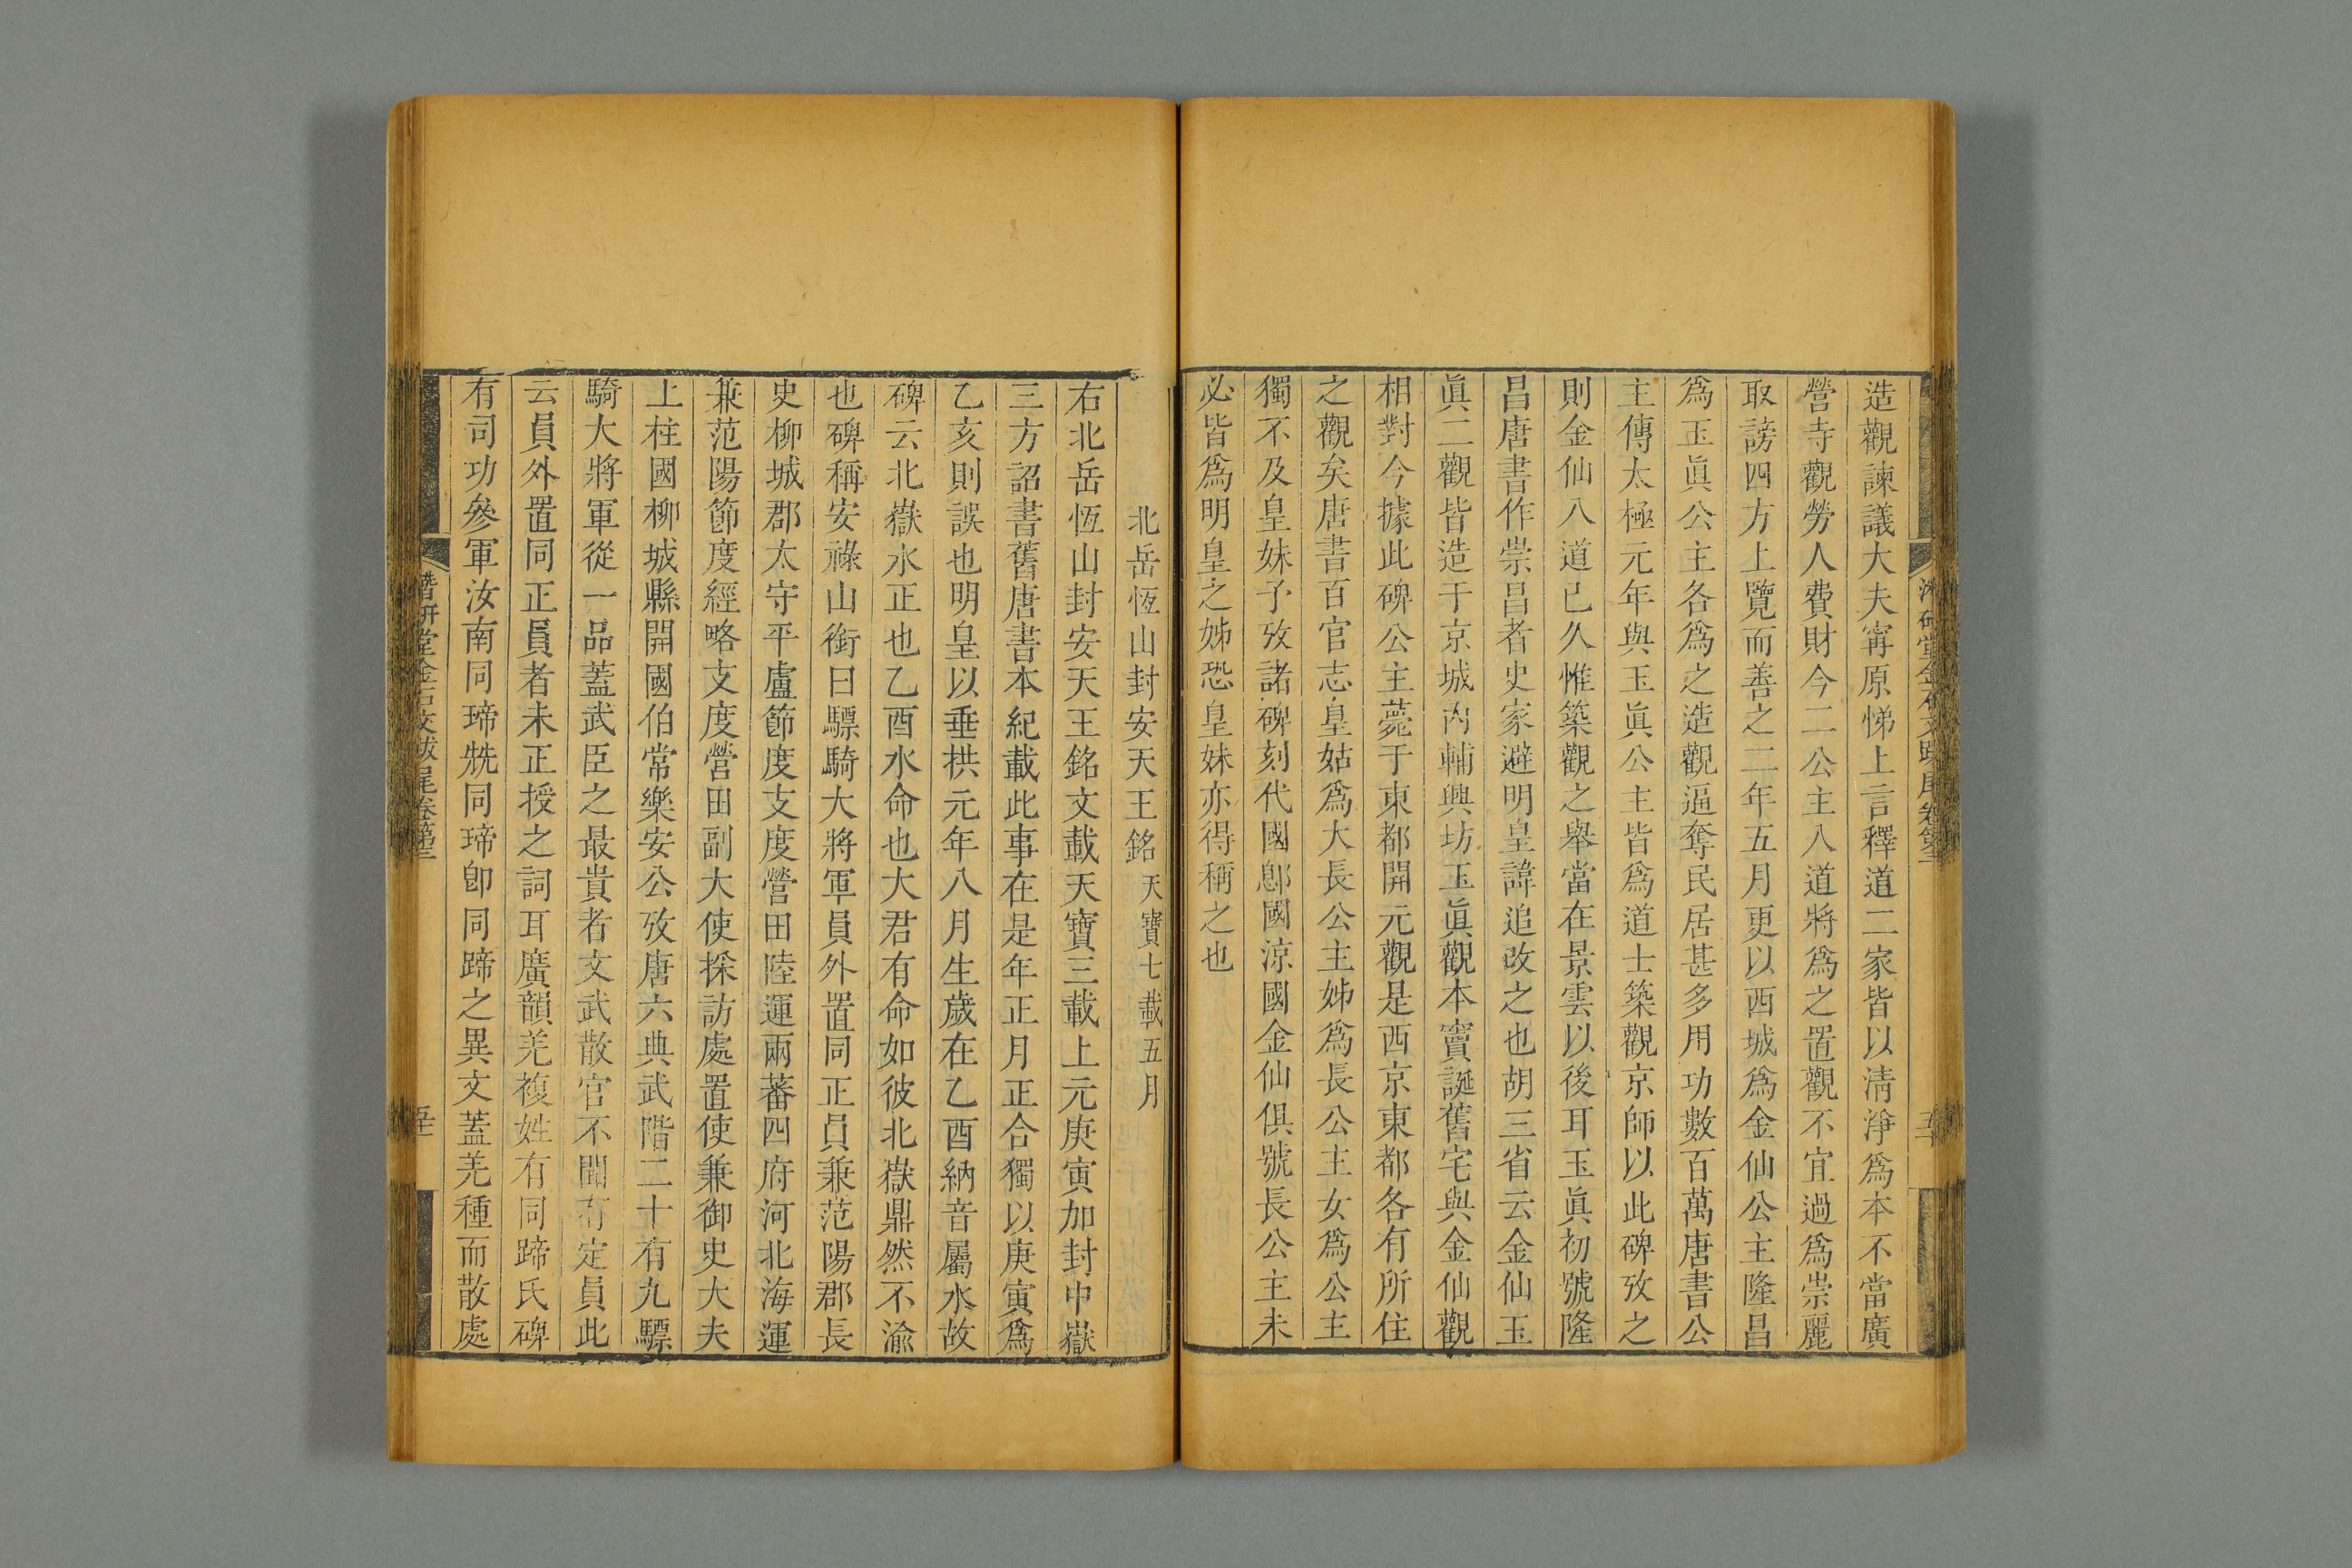 造觀諫議大夫甯原悌上言釋道二家皆以清淨爲本不當廣
營寺觀勞人費財今二公主入道將爲之置觀不宜過爲崇麗
取謗四方上覽而善之二年五月更以西城爲金仙公主隆昌
爲玉眞公主各爲之造觀逼奪民居甚多用功數百萬唐書公
主傳太極元年與玉眞公主皆爲道士築觀京師以此碑攷之
則金仙入道已久惟築觀之舉當在景雲以後耳玉眞初號隆
昌唐書作崇昌者史家避明皇諱追改之也胡三省云金仙玉
眞二觀皆造于京城內輔興坊玉眞觀本竇誕舊宅與金仙觀
相對今據此碑公主薨于東都開元觀是西京東都各有所住
之觀矣唐書百官志皇姑爲大長公主姊爲長公主女爲公主
獨不及皇妹予攷諸碑刻代國鄎國涼國金仙俱號長公主未
必皆爲明皇之姊恐皇妹亦得稱之也
北岳恆山封安天王銘 天寶七載五月
右北岳恆山封安天王銘文載天寶三載上元庚寅加封中嶽
三方詔書舊唐書本紀載此事在是年正月正合獨以庚寅爲
乙亥則誤也明皇以垂拱元年八月生歲在乙酉納音屬水故
碑云北嶽水正也乙酉水命也大君有命如彼北嶽鼎然不渝
也碑稱安祿山銜曰驃騎大將軍員外置同正員兼范陽郡長
史柳城郡太守平盧節度支度營田陸運兩蕃四府河北海運
兼范陽節度經略支度營田副大使採訪處置使兼御史大夫
上柱國柳城縣開國伯常樂安公攷唐六典武階二十有九驃
騎大將軍從一品蓋武臣之最貴者文武散官不聞有定員此
云員外置同正員者未正授之詞耳廣韻羌複姓有同蹄氏碑
有司功參軍汝南同㻛兟同㻛卽同蹄之異文蓋羌種而散處
潛研堂金石文跋尾卷第